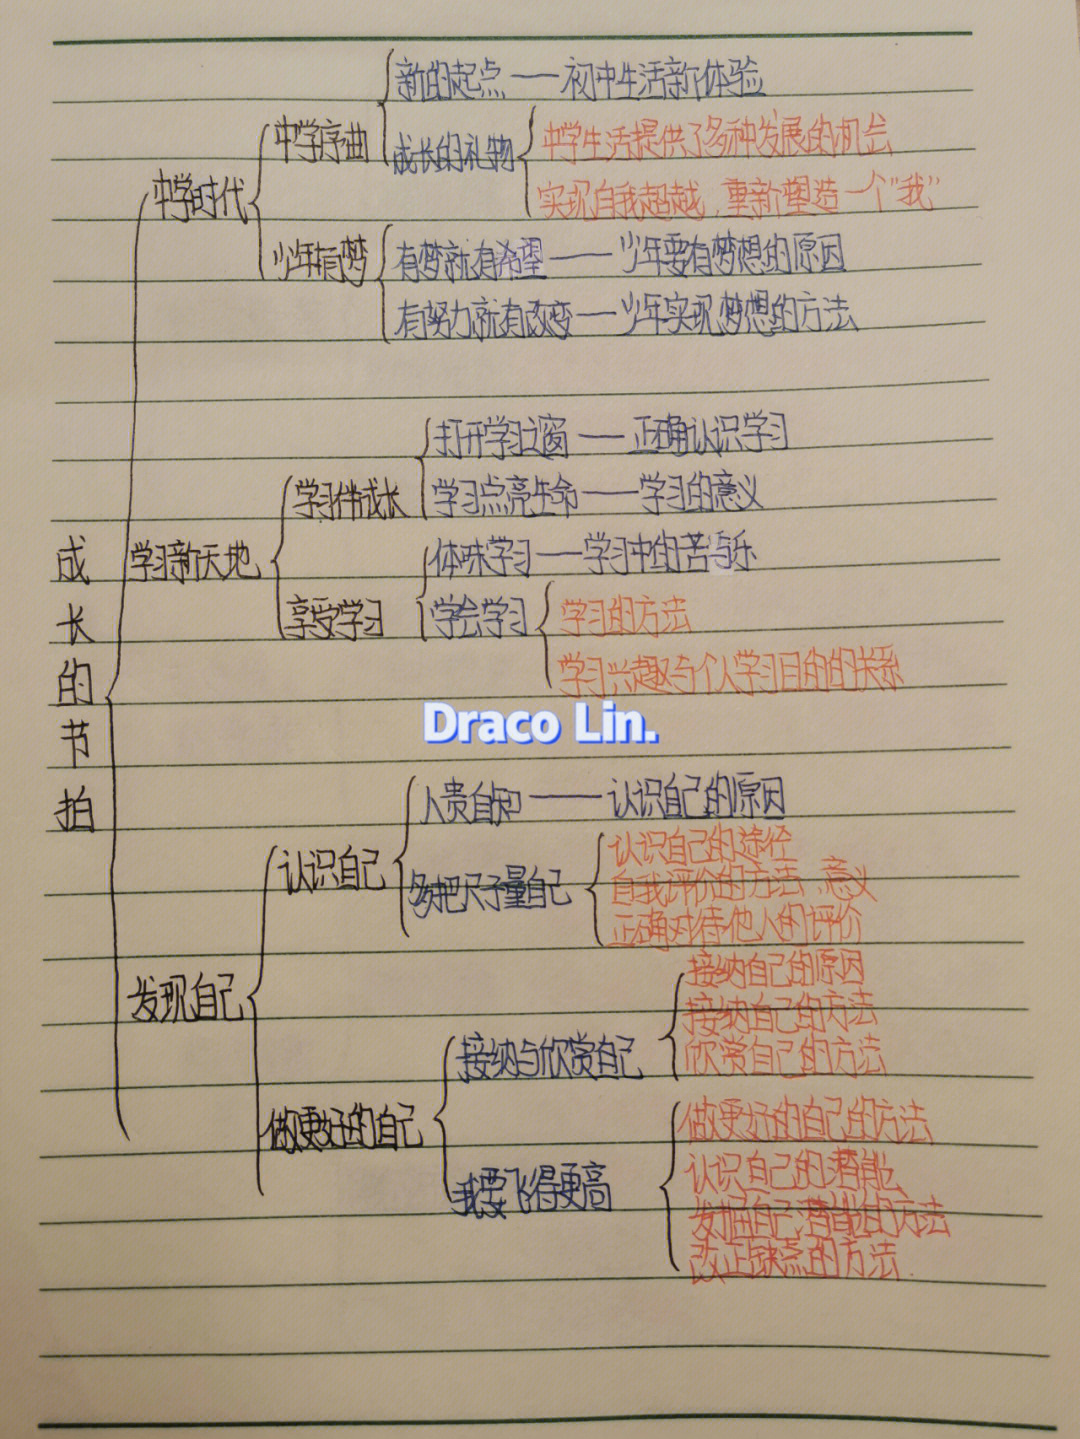 成长的节拍
中学时代
中学序曲
新的起点——初中生活新体验
成长的礼物
中学生活提供了多种发展的机会
实现自我超越,重新塑造一个“我”
少年有梦
有梦就有希望——少年要有梦想的原因
有努力就有改变——少年实现梦想的方法
学习新天地
学习伴成长
打开学习之窗——正确认识学习
学习点亮生命——学习的意义
享受学习
体味学习——学习中的苦与乐
学会学习
学习的方法
学习兴趣与个人学习目的的关系
Draco Lin.
发现自己
认识自己
人贵自知——认识自己的原因
多把尺子量自己
认识自己的途径
自我评价的方法、意义
正确对待他人的评价
做更好的自己
接纳与欣赏自己
接纳自己的原因
接纳自己的方法
欣赏自己的方法
我要飞得更高
做更好的自己的方法
认识自己的潜能
发掘自己潜能的方法
改正缺点的方法.